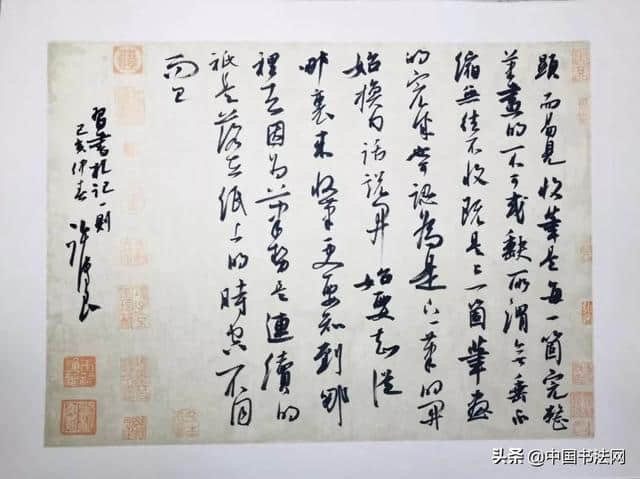 顯而易見收筆是每一箇完整
筆畫的不可或缺所謂無垂不
縮無往不收既是上一箇筆畫
的完成認為是下一筆的開
始換句話說開始要知從
哪裏來收筆更要知到哪
裡去因為筆勢是連續的
祇是落在紙上的時空不同
而已
習書札記一則
己亥仲春
头条 @中国书法网